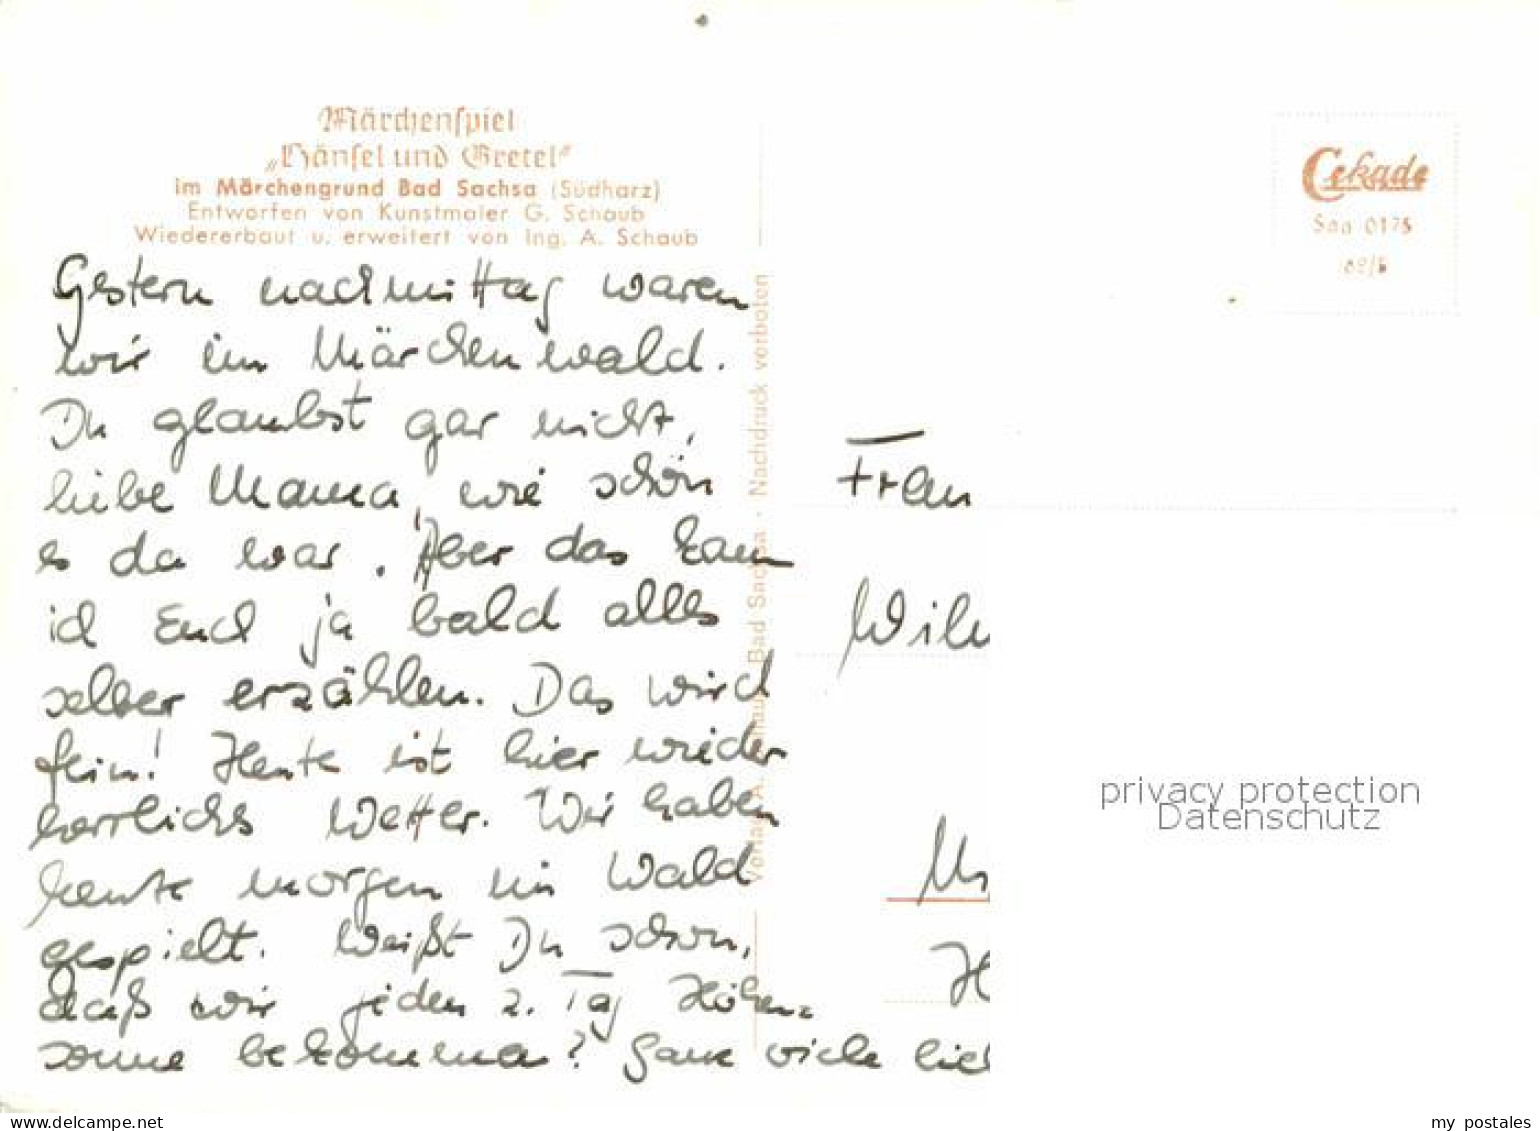 Märchenspiel
„Hänsel und Gretel"
im Märchengrund Bad Sachsa (Südharz)
Entworfen von Kunstmaler G. Schaub
Wiedererbaut u. erweitert von Ing. A. Schaub
Cekade
Saa 0175
Gestern nachmittag waren
wir im Märchenwald.
Du glaubst gar nicht,
liebe Mama, wie schön
es da war. Aber das kann
ich Euch ja bald alles
selber erzählen. Das wird
fein! Heute ist hier wieder
herrliches Wetter. Wir haben
heute morgen im Wald
gespielt. Weißt Du schon,
daß wir jeden 2. Tag Höhen-
sonne bekommen? Ganz viele
Verlag A. Schaub, Bad Sachsa · Nachdruck verboten
Frau
privacy protection
Datenschutz
delcampe.net
my_postales